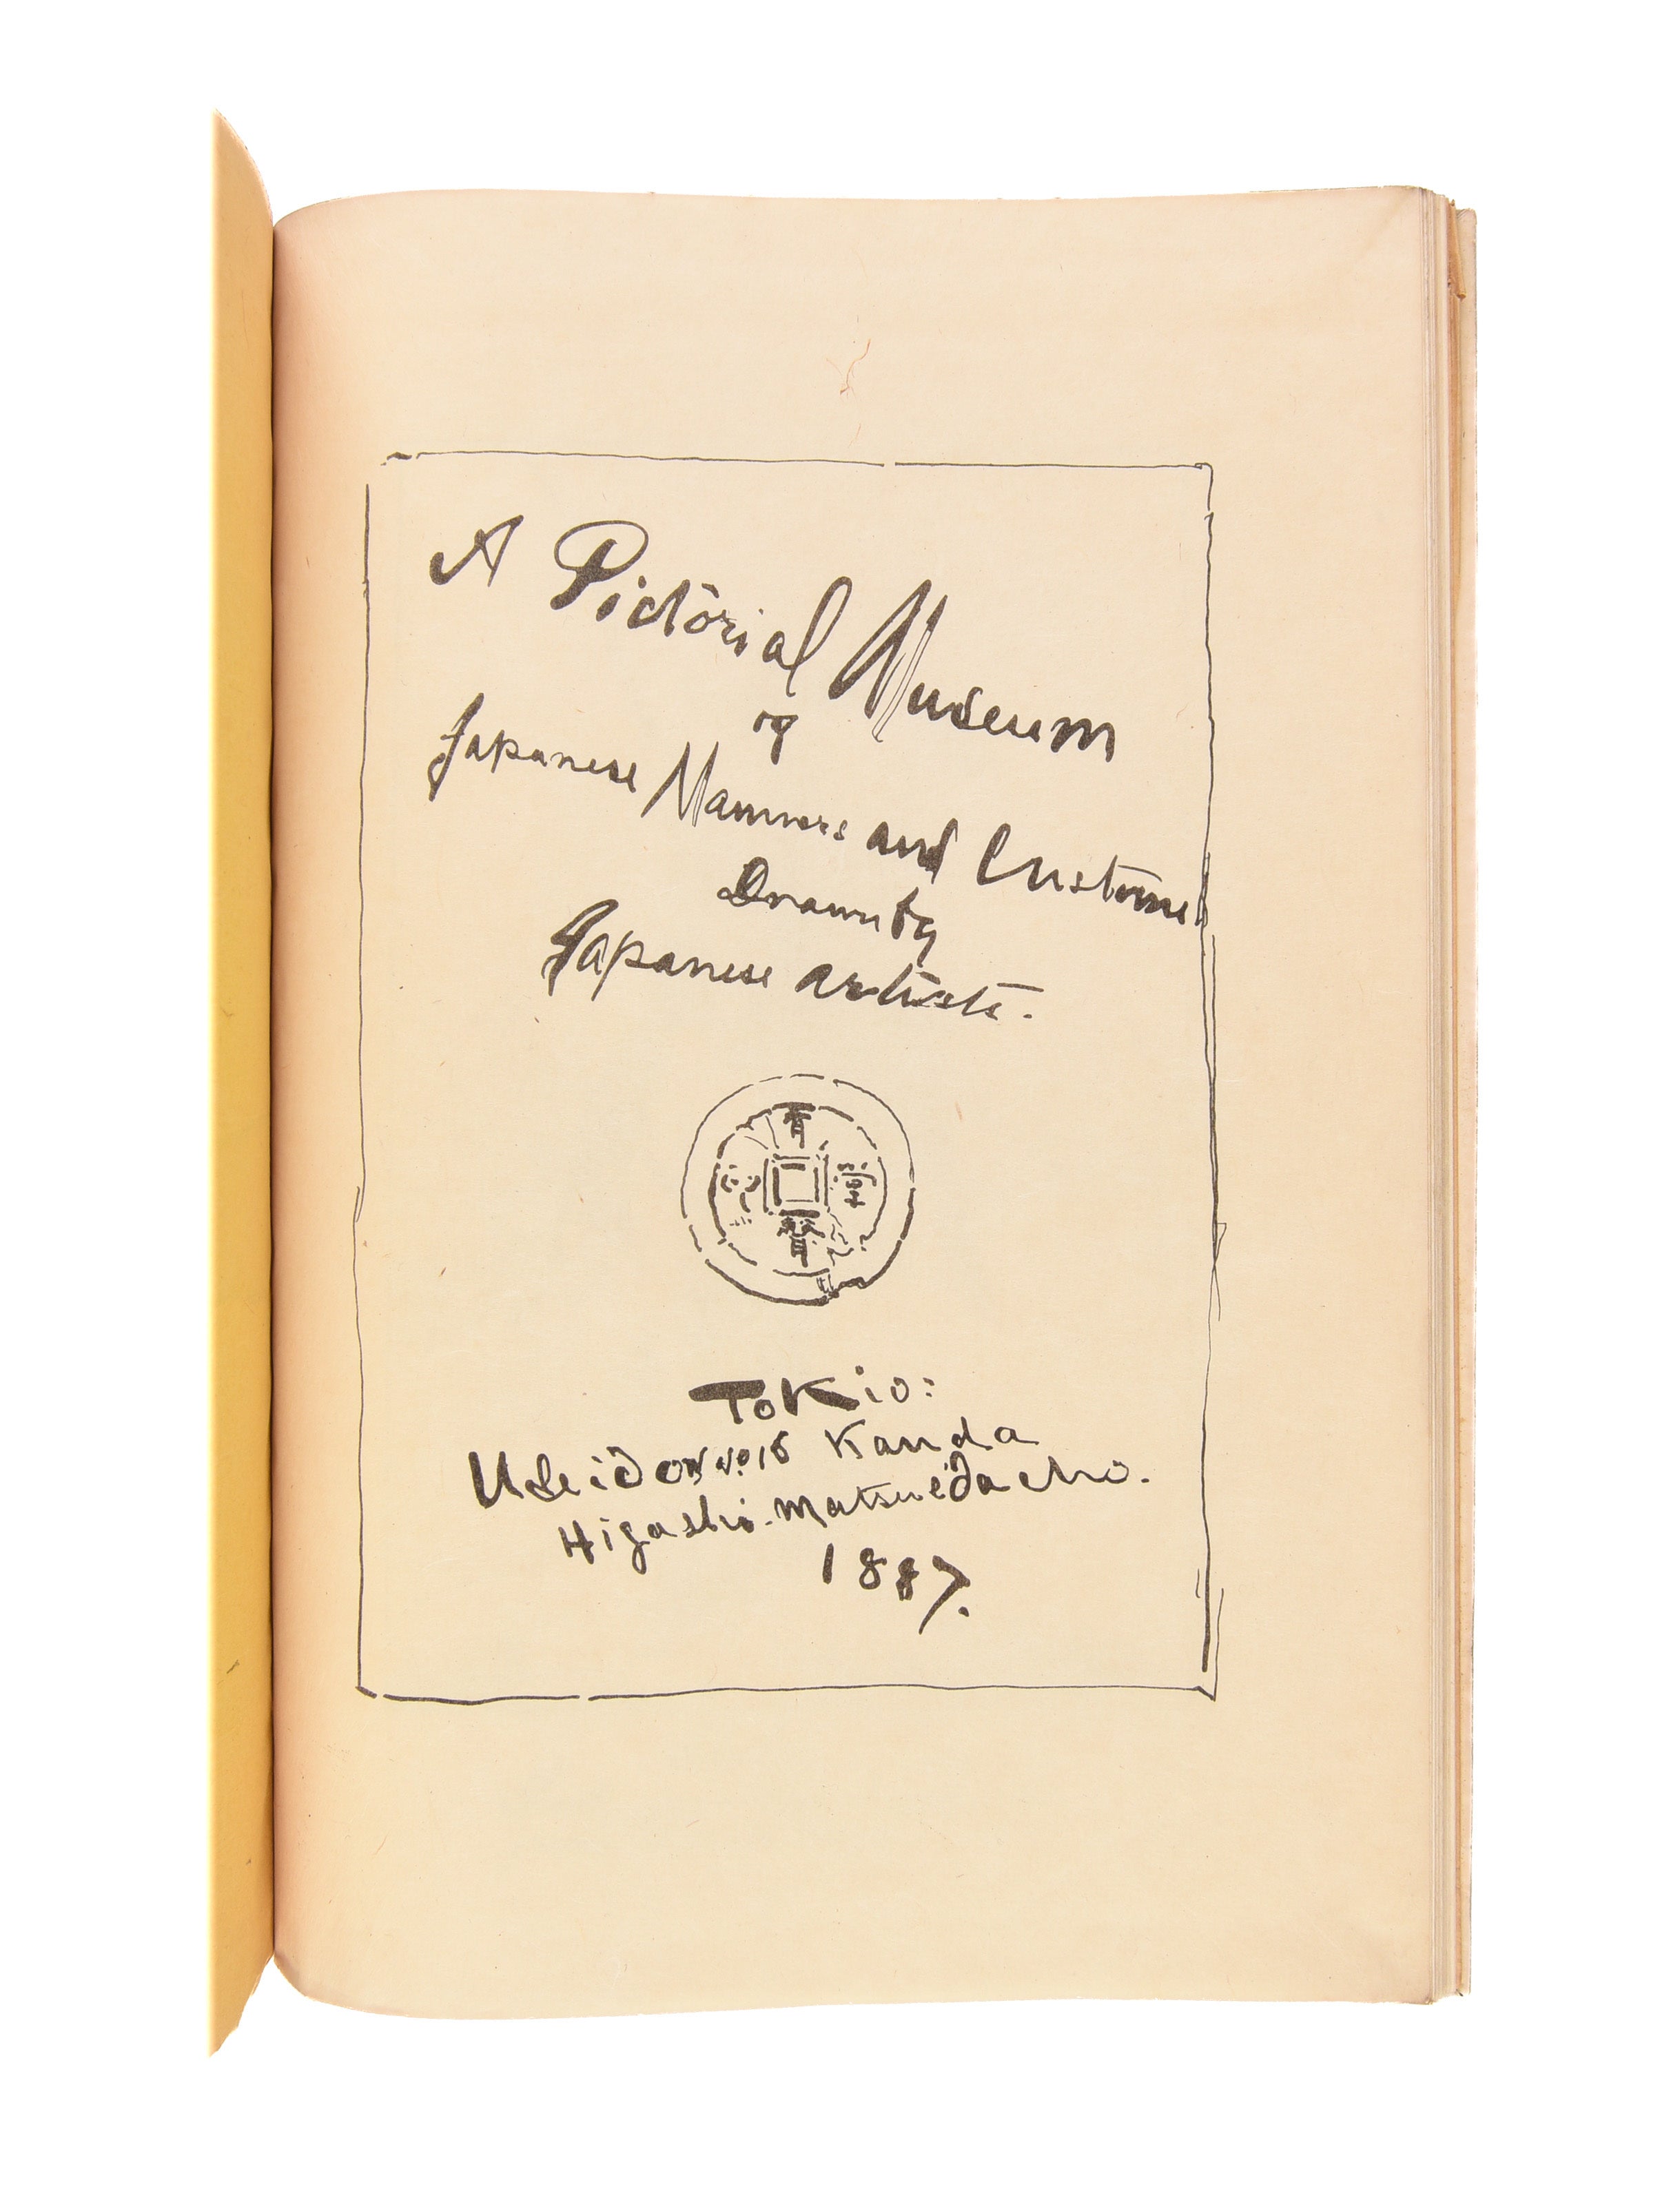 A Pictorial Museum
of
Japanese Manners and Customs
Drawn by
Japanese artists.
堂
Tokio:
No16 Kanda
Higashi-Matsueda cho.
1887.